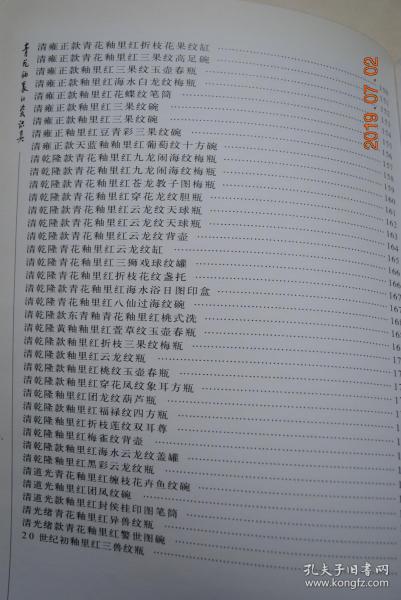 清雍正款青花釉里红折枝花果纹缸
清雍正款青花釉里红三果纹高足碗
清雍正款釉里红三果纹玉壶春瓶
清雍正款釉里红海水白龙纹梅瓶
清雍正款青花釉里红花蝶纹笔筒 150
清雍正款釉里红三果纹碗
清雍正款釉里红三果纹碗
清雍正釉里红豆青彩三果纹碗
清雍正款天蓝釉釉里红葡萄纹十方碗
清乾隆款青花釉里红九龙闹海纹梅瓶 158
清乾隆款青花釉里红九龙闹海纹梅瓶 159
清乾隆款青花釉里红苍龙教子图梅瓶 160
清乾隆款青花釉里红穿花龙纹胆瓶 161
清乾隆款青花釉里红云龙纹天球瓶 162
清乾隆款青花釉里红云龙纹天球瓶
清乾隆款青花釉里红云龙纹背壶 164
清乾隆青花釉里红云龙纹缸 165
清乾隆青花釉里红三狮戏球纹罐
清乾隆款青花釉里红折枝花纹盏托 166
清乾隆款青花釉里红海水浴日图印盒
清乾隆青花釉里红八仙过海纹碗
清乾隆款东青釉青花釉里红桃式洗
清乾隆黄釉釉里红萱草纹玉壶春瓶
清乾隆款釉里红折枝三果纹梅瓶
清乾隆款釉里红云龙纹瓶
清乾隆釉里红桃纹玉壶春瓶
清乾隆款釉里红穿花凤纹象耳方瓶
清乾隆釉里红团龙纹葫芦瓶
清乾隆款釉里红福禄纹四方瓶
清乾隆釉里红折枝莲纹双耳尊
清乾隆釉里红梅雀纹背壶
清乾隆款釉里红海水云龙纹盖罐
清乾隆釉里红黑彩云龙纹瓶
清道光青花釉里红缠枝花卉鱼纹碗
清道光款釉里红团凤纹碗
清道光款釉里红封侯挂印图笔筒
清光绪青花釉里红异兽纹瓶
清光绪款青花釉里红警世图碗
20世纪初釉里红三兽纹瓶
2019 07 02
孔夫子旧书网
www.kongfz.com